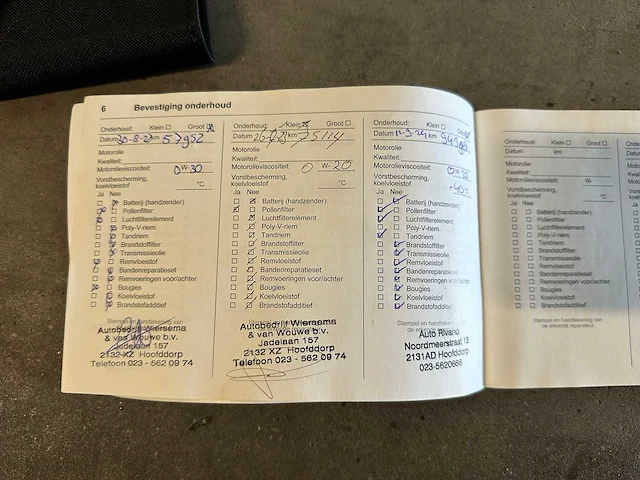 6 Bevestiging onderhoud
Onderhoud: Klein Groot
Datum 30-8-22 km 57952
Motorolie
Kwaliteit:
Motorolieviscositeit: 0 W- 30
Vorstbescherming,
koelvloeistof °C
Ja Nee
Batterij (handzender)
Pollenfilter
Luchtfilterelement
Poly-V-riem
Tandriem
Brandstoffilter
Transmissieolie
Remvloeistof
Bandenreparatieset
Remvoeringen voor/achter
Bougies
Koelvloeistof
Brandstofadditief
Stempel en handtekening van
Autobedrijf Wiersema
& van Wouwe b.v.
Jadelaan 157
2132 XZ Hoofddorp
Telefoon 023 - 562 09 74
Onderhoud: Klein Groot
Datum km 75114
Motorolie
Kwaliteit:
Motorolieviscositeit: 0 W- 20
Vorstbescherming,
koelvloeistof °C
Ja Nee
Batterij (handzender)
Pollenfilter
Luchtfilterelement
Poly-V-riem
Tandriem
Brandstoffilter
Transmissieolie
Remvloeistof
Bandenreparatieset
Remvoeringen voor/achter
Bougies
Koelvloeistof
Brandstofadditief
Autobedrijf Wiersema
& van Wouwe b.v.
Jadelaan 157
2132 XZ Hoofddorp
Telefoon 023 - 562 09 74
Onderhoud: Klein
Datum 11-9-24 km
Motorolie
Kwaliteit:
Motorolieviscositeit:
Vorstbescherming,
koelvloeistof
Ja Nee
Batterij (handzender)
Pollenfilter
Luchtfilterelement
Poly-V-riem
Tandriem
Brandstoffilter
Transmissieolie
Remvloeistof
Bandenreparatieset
Remvoeringen voor/achter
Bougies
Koelvloeistof
Brandstofadditief
Stempel en handtekening van
Auto Rivano
Noordmeerstraat 13
2131AD Hoofddorp
023-5620666
Onderhoud: Klein Groot
Datum km
Motorolie
Kwaliteit:
Motorolieviscositeit: W-
Vorstbescherming,
koelvloeistof °C
Ja Nee
Batterij (handzender)
Pollenfilter
Luchtfilterelement
Poly-V-riem
Tandriem
Brandstoffilter
Transmissieolie
Remvloeistof
Bandenreparatieset
Remvoeringen voor/achter
Bougies
Koelvloeistof
Brandstofadditief
Stempel en handtekening van
de erkende reparateur.